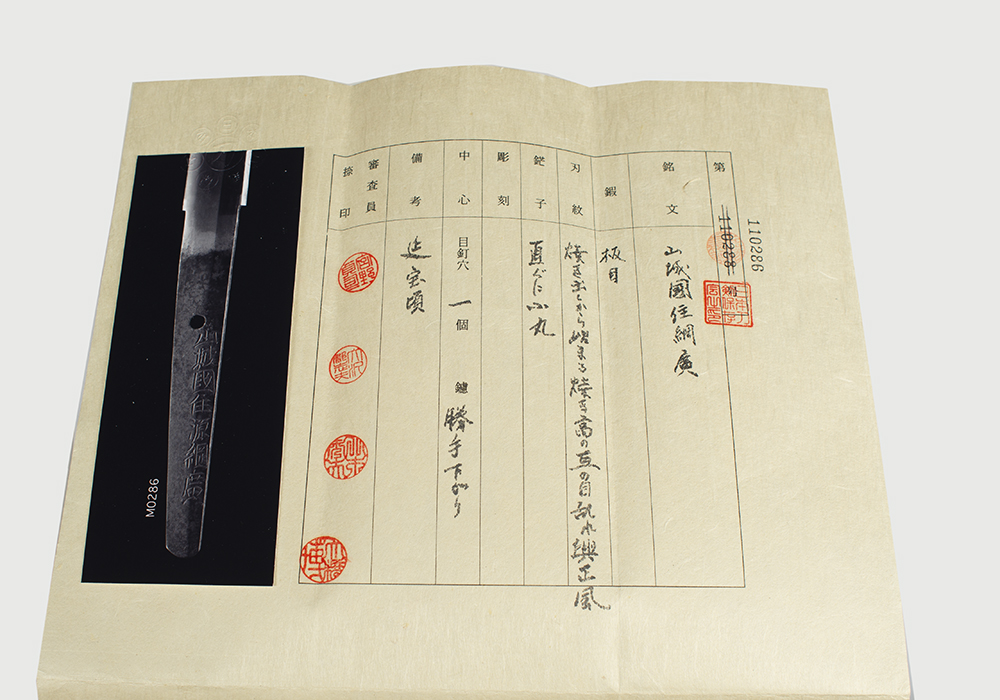 第
110286
110288
銘文
山城國住綱廣
鍜
板目
刃紋
焼き出しから始まる焼き高の互の目乱れ興正風
鋩子
直ぐに小丸
彫刻
中心
目釘穴
一個
鑢
勝手下がり
備考
延宝頃
審査員
捺印
山城國住源綱廣
M0286